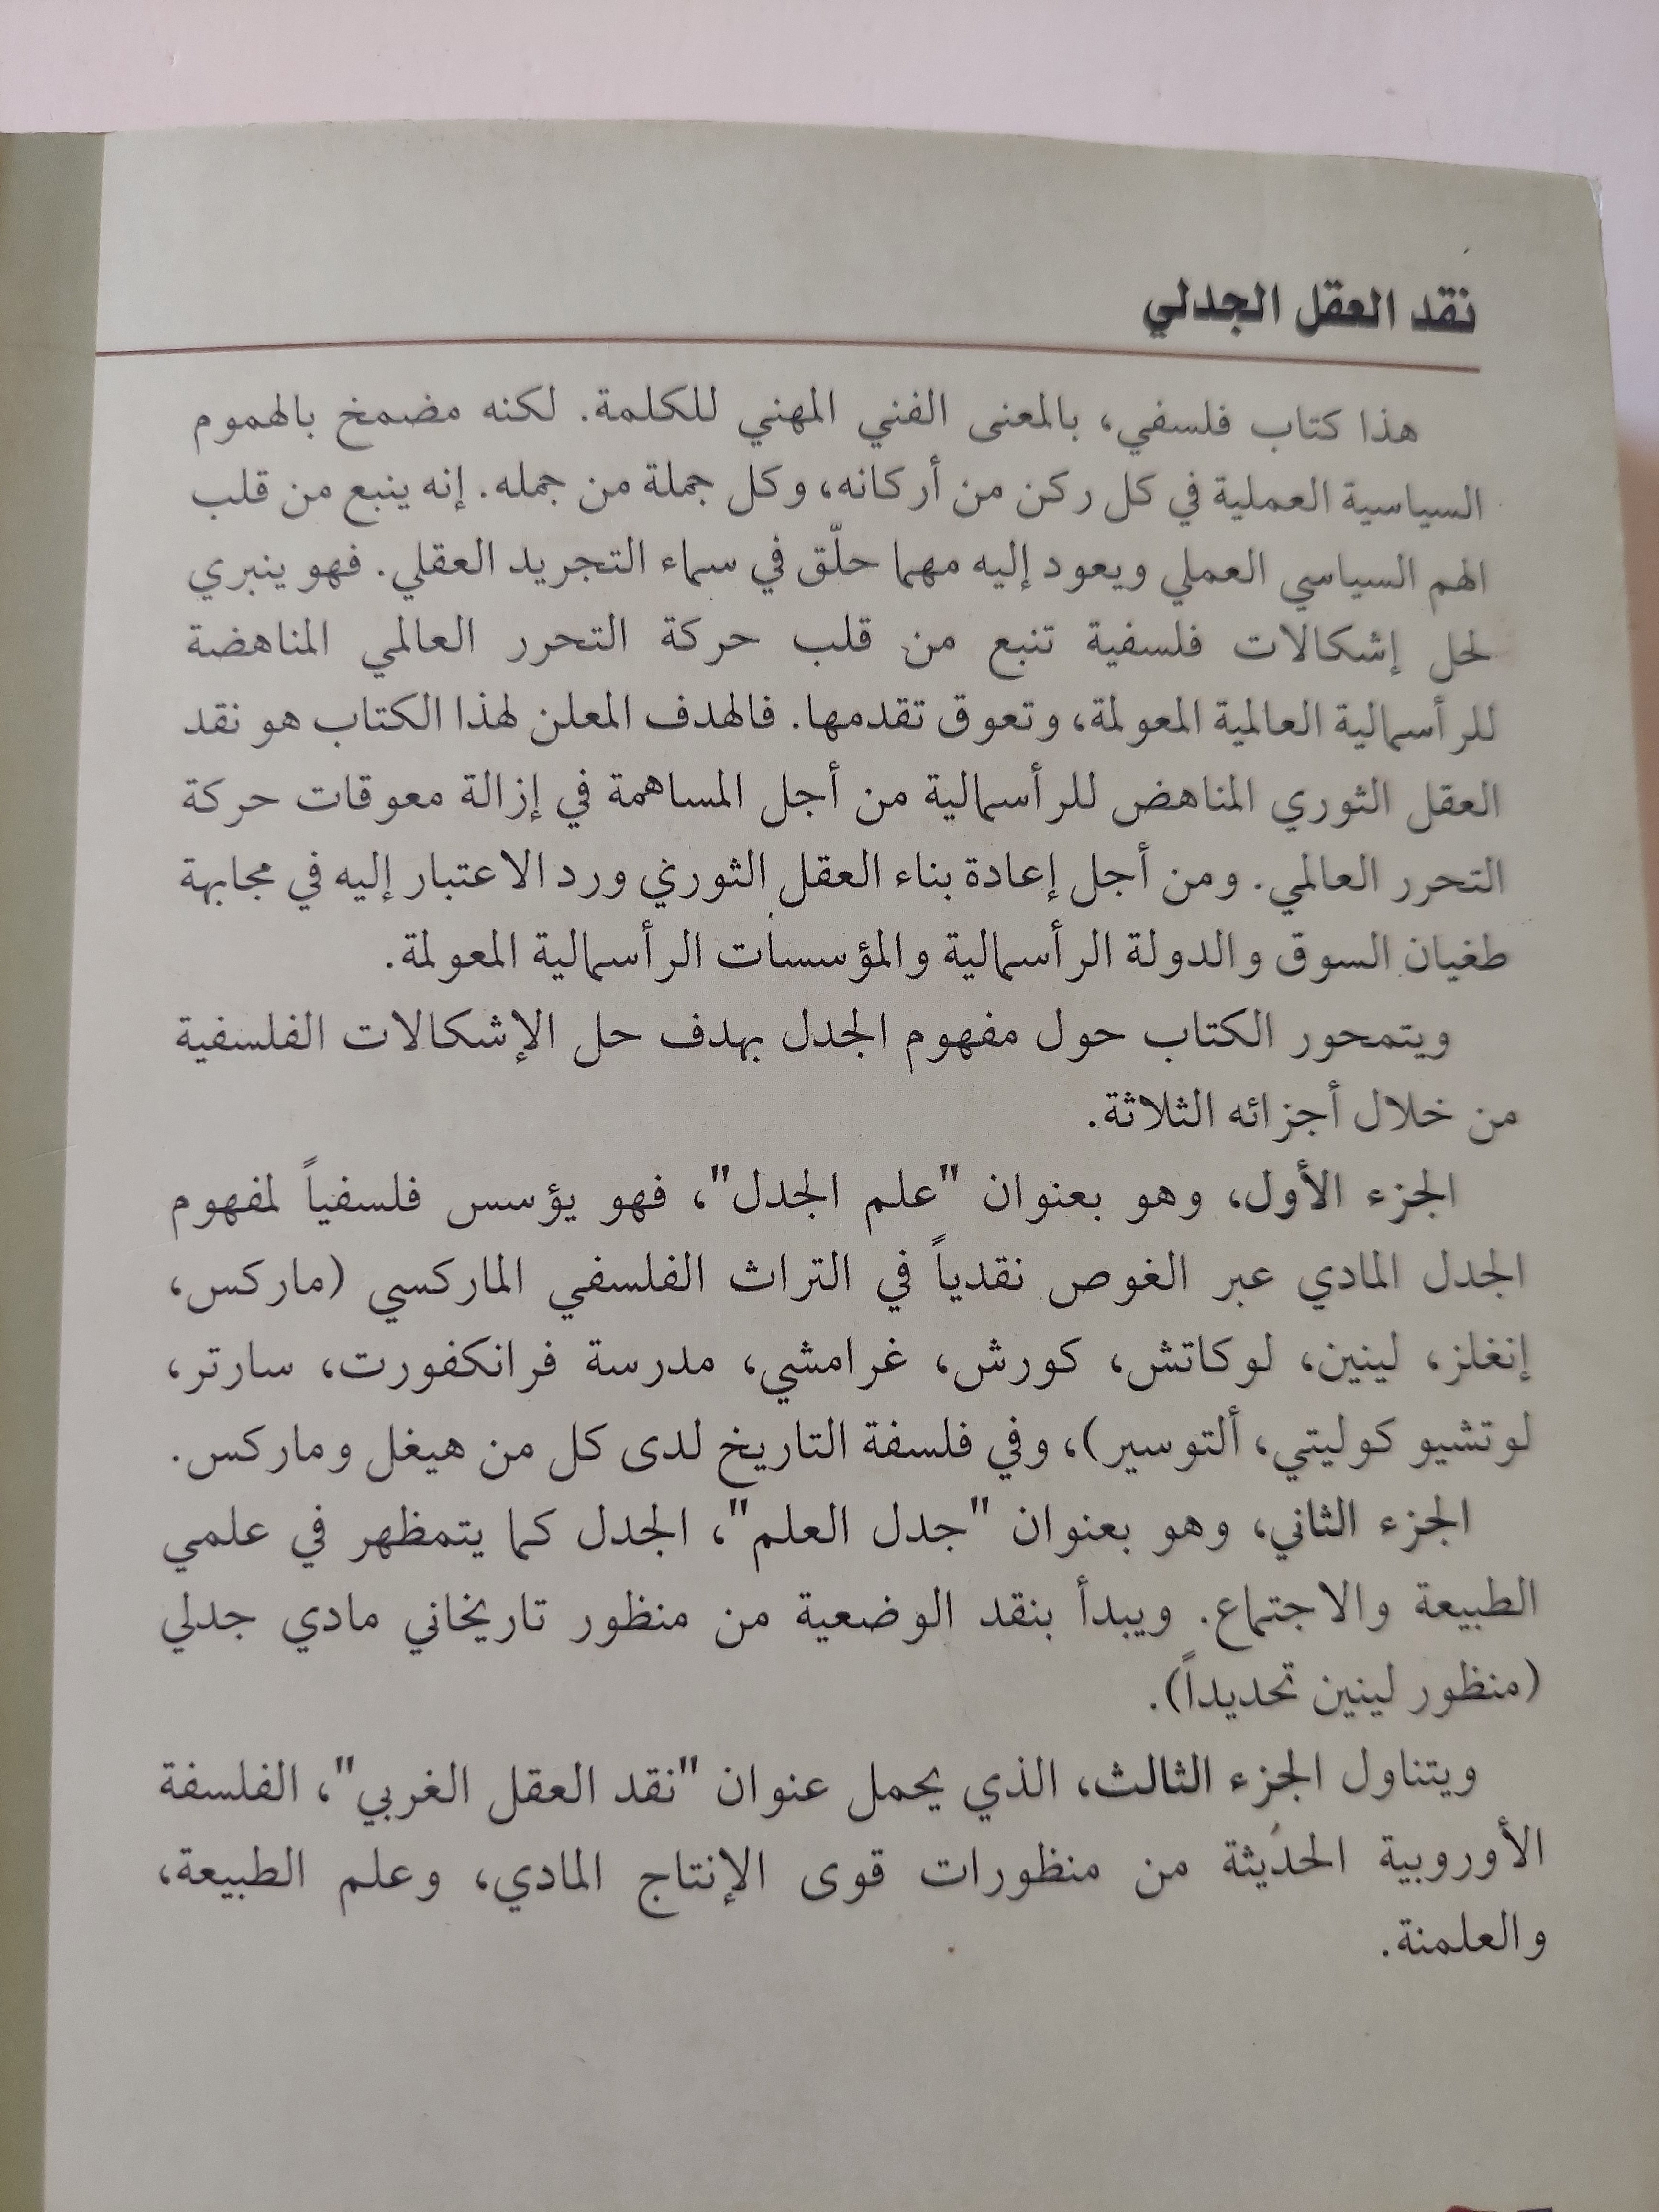 نقد العقل الجدلي
هذا كتاب فلسفي، بالمعنى الفني المهني للكلمة. لكنه مضمخ بالهموم
السياسية العملية في كل ركن من أركانه، وكل جملة من جمله. إنه ينبع من قلب
الهم السياسي العملي ويعود إليه مهما حلّق في سماء التجريد العقلي. فهو ينبري
لحل إشكالات فلسفية تنبع من قلب حركة التحرر العالمي المناهضة
للرأسمالية العالمية المعولمة، وتعوق تقدمها. فالهدف المعلن لهذا الكتاب هو نقد
العقل الثوري المناهض للرأسمالية من أجل المساهمة في إزالة معوقات حركة
التحرر العالمي. ومن أجل إعادة بناء العقل الثوري ورد الاعتبار إليه في مجابهة
طغيان السوق والدولة الرأسمالية والمؤسسات الرأسمالية المعولمة.
ويتمحور الكتاب حول مفهوم الجدل بهدف حل الإشكالات الفلسفية
من خلال أجزائه الثلاثة.
الجزء الأول، وهو بعنوان "علم الجدل"، فهو يؤسس فلسفياً لمفهوم
الجدل المادي عبر الغوص نقدياً في التراث الفلسفي الماركسي (ماركس،
إنغلز، لينين، لوكاتش، كورش، غرامشي، مدرسة فرانكفورت، سارتر،
لوتشيو كوليتي، ألتوسير)، وفي فلسفة التاريخ لدى كل من هيغل وماركس.
الجزء الثاني، وهو بعنوان "جدل العلم"، الجدل كما يتمظهر في علمي
الطبيعة والاجتماع. ويبدأ بنقد الوضعية من منظور تاريخاني مادي جدلي
(منظور لينين تحديداً).
ويتناول الجزء الثالث، الذي يحمل عنوان "نقد العقل الغربي"، الفلسفة
الأوروبية الحديثة من منظورات قوى الإنتاج المادي، وعلم الطبيعة،
والعلمنة.